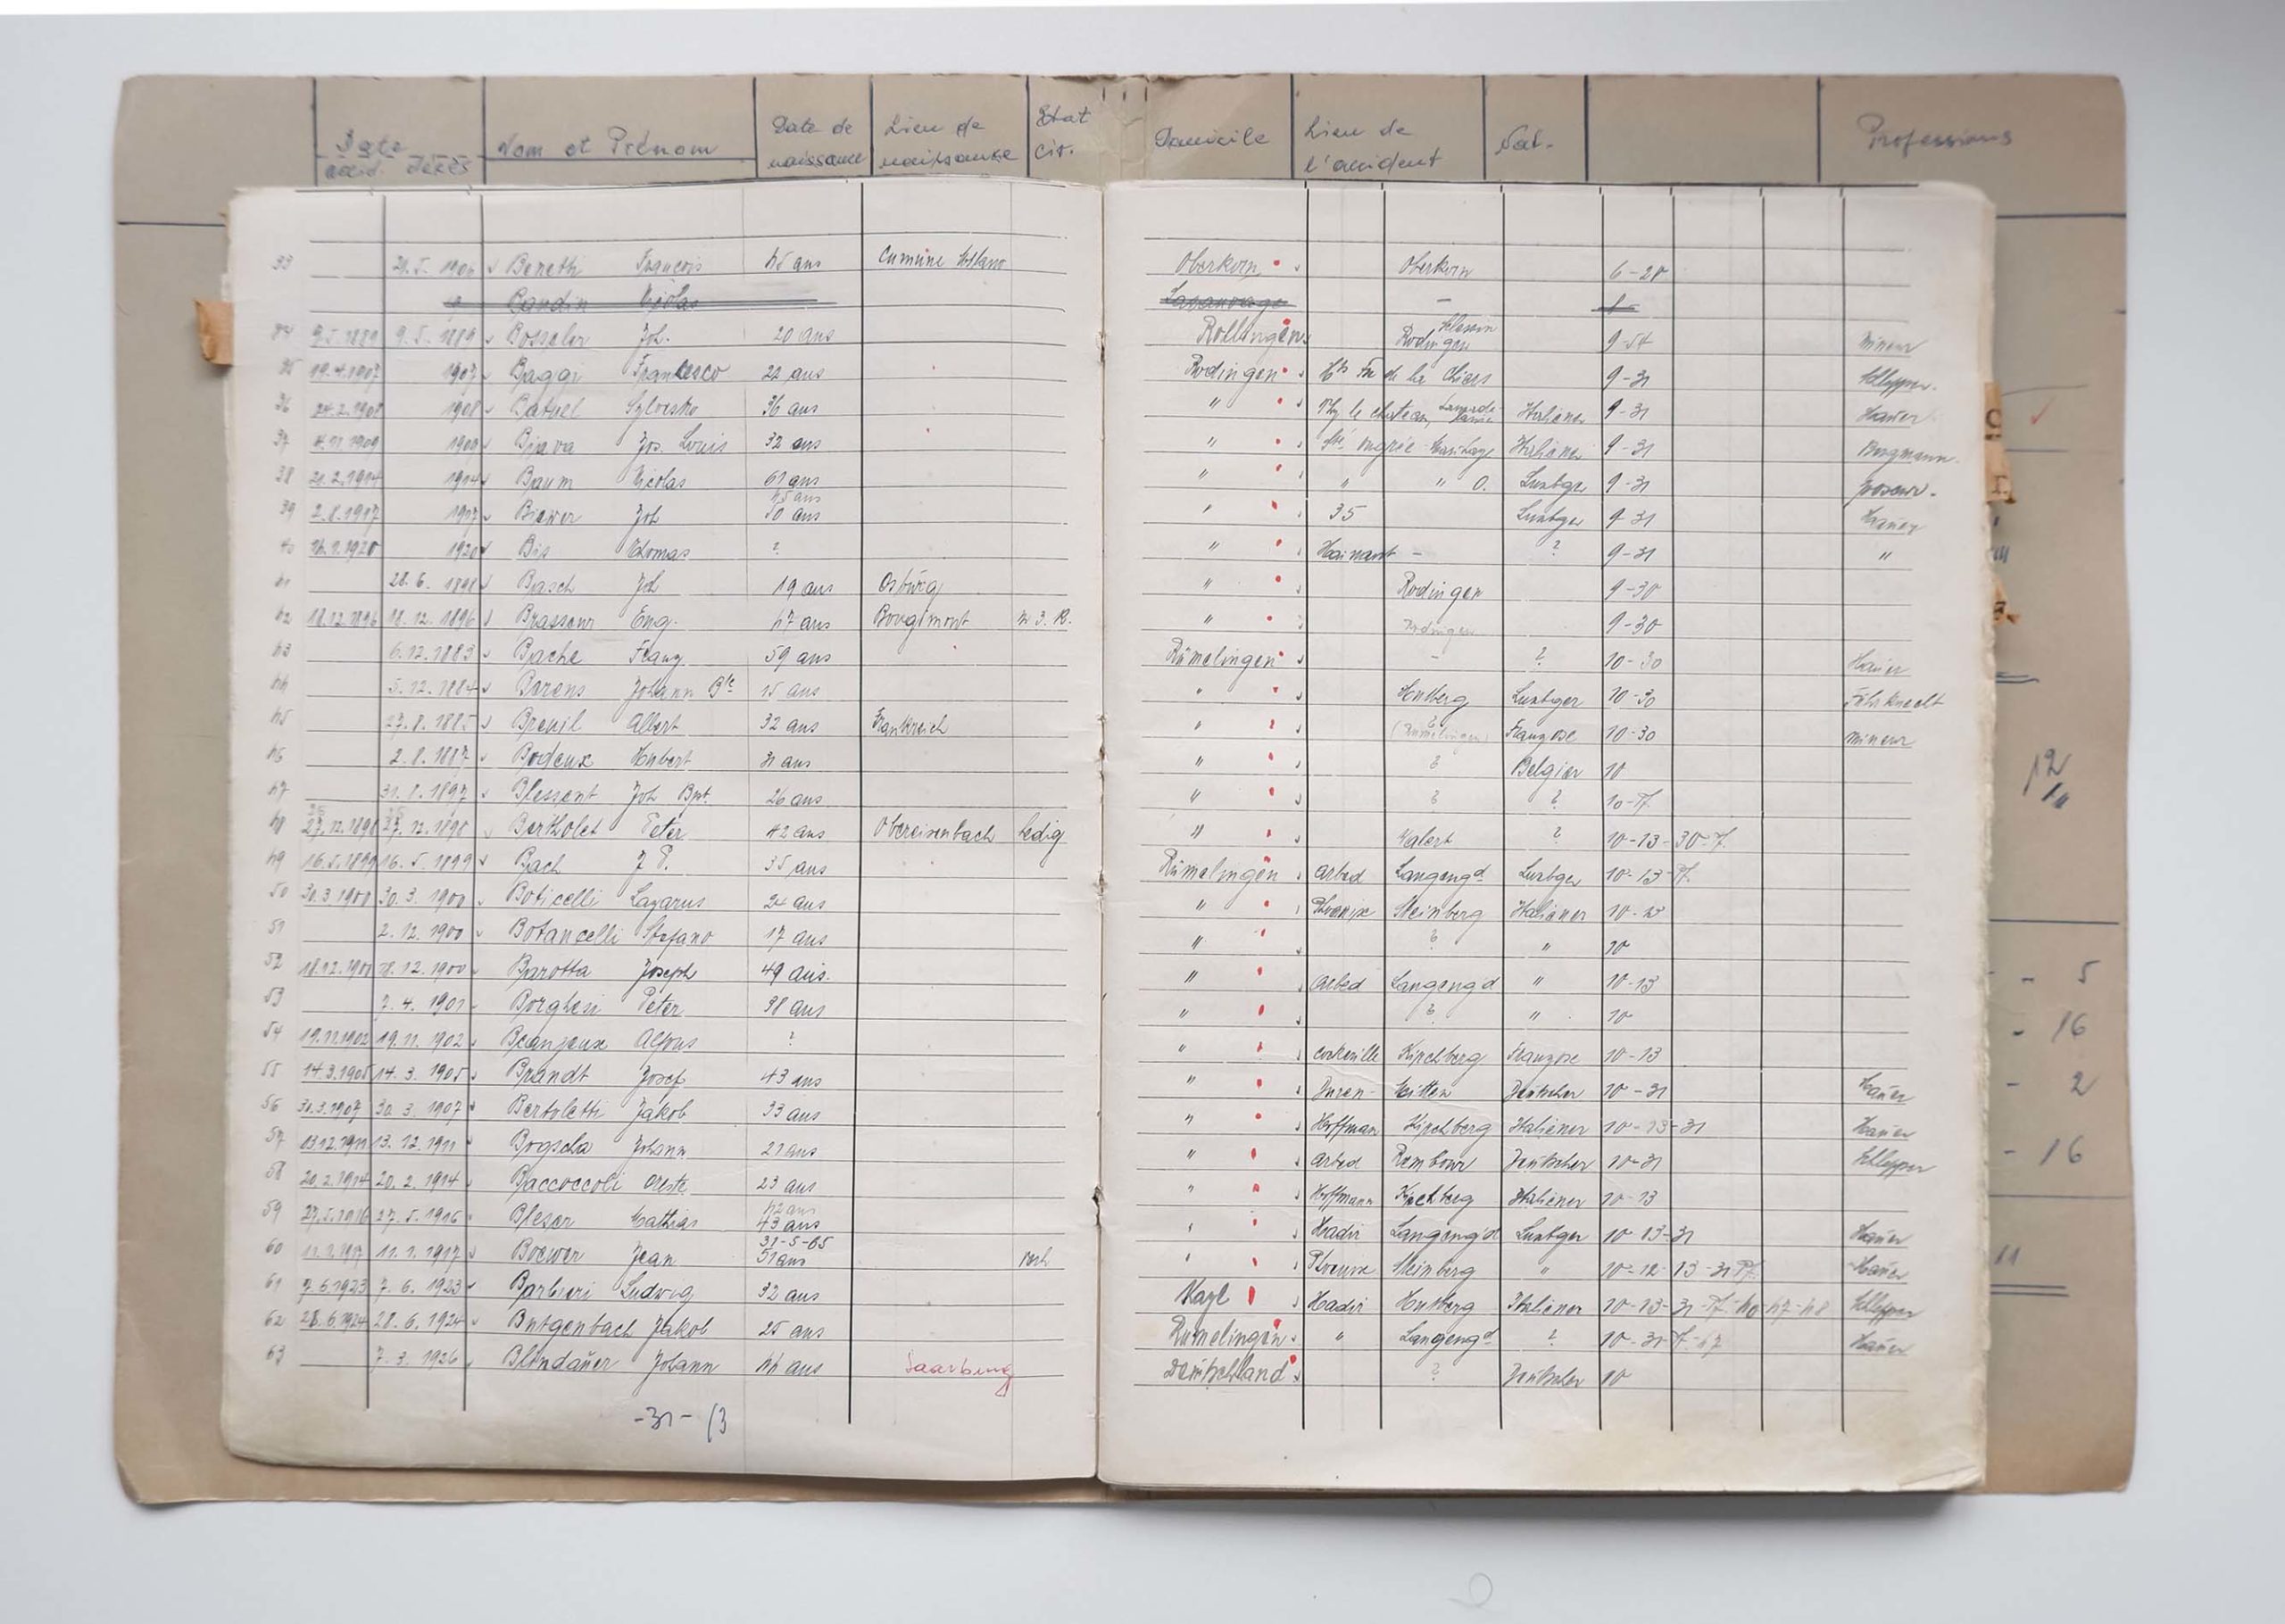 Date accid. décès Nom et Prénom Date de naissance Lieu de naissance Etat civ. Domicile Lieu de l'accident Nat. Professions
33 1900 Beretti François 45 ans Oberkorn Oberkorn 6-28
Bandin Nicolas
34 9.5.1889 9.5.1889 Bosseler Joh. 20 ans Rollingen Rodingen 9-54 Mineur
35 19.4.1907 1907 Baggi Francesco 22 ans Rodingen de la Chiers 9-31 Schlepper
36 24.2.1908 1908 Batuel Sylvestro 36 ans " Italiener 9-31 Hauer
37 4.11.1909 1909 Biava Jos. Louis 32 ans " Italiener 9-31 Bergmann
38 21.2.1914 1914 Baum Nicolas 61 ans " " " O. Luxbger 9-31 poseur
39 2.8.1917 1917 Biewer Joh 45 ans 50 ans " 35 Luxbger 9-31 Hauer
40 1920 1920 Bis Thomas ? " Hainaut - ? 9-31 "
41 28.6.1898 Basch Joh 19 ans Osburg " Rodingen 9-30
42 18.12.1896 18.12.1896 Brasseur Eug. 47 ans Bougimont " Rodingen 9-30
43 6.12.1883 Bache Franz 59 ans Rümelingen - ? 10-30 Hauer
44 5.12.1884 Barens Johann Bte 15 ans " Hutberg Luxbger 10-30 Fuhrknecht
45 27.8.1885 Breuil Albert 32 ans Frankreich " ? (Rümelingen) Franzose 10-30 Mineur
46 2.8.1887 Bodeux Hubert 31 ans " ? Belgier 10
47 31.8.1897 Blessent Joh Bpt. 26 ans " ? ? 10-
48 27.12.1898 27.12.1898 Bertholet Peter 42 ans Obereisenbach Ledig " Walert ? 10-13-30-
49 16.5.1899 16.5.1899 Bach J P. 35 ans Rümelingen Arbed Langengd Luxbger 10-13-
50 30.3.1900 30.3.1900 Boticelli Lazarus 24 ans " Phoenix Steinberg Italiener 10-13
51 2.12.1900 Botancelli Stefano 17 ans " ? " 10
52 18.12.1900 18.12.1900 Barotta Joseph 49 ans. " Arbed Langengd " 10-13
53 7.4.1901 Borghesi Peter 38 ans " ? " 10
54 19.11.1902 19.11.1902 Beaujeux Alfons ? " Kirchberg Franzose 10-13
55 14.3.1905 14.3.1905 Brandt Josef 43 ans " Düren- Hütten Deutscher 10-31 Hauer
56 30.3.1907 30.3.1907 Bertoletti Jakob 33 ans " Hoffmann Kirchberg Italiener 10-13-31 Hauer
57 13.12.1911 13.12.1911 Bogscha Johann 21 ans " Arbed Rembour Deutscher 10-31 Schlepper
58 20.2.1914 20.2.1914 Baccoccoli Oreste 23 ans " Hoffmann Kirchberg Italiener 10-13
59 27.5.1916 27.5.1916 Bleser Mathias 42 ans 43 ans " Hadir Langengd Luxbger 10-13-31 Hauer
60 11.1.1917 11.1.1917 Boewer Jean 31-5-65 51 ans verh " Phoenix Steinberg " 10-12-13-31 Hauer
61 7.6.1923 7.6.1923 Barbieri Ludwig 32 ans Kayl Hadir Hutberg Italiener 10-13-31- -40-47-48 Schlepper
62 28.6.1924 28.6.1924 Butgenbach Jakob 25 ans Rümelingen " Langengd ? 10-31- -47 Hauer
63 7.3.1926 Blondauer Johann 44 ans Saarburg Deutschland ? Deutscher 10
-31-
12
- 5
- 16
- 2
- 16
11